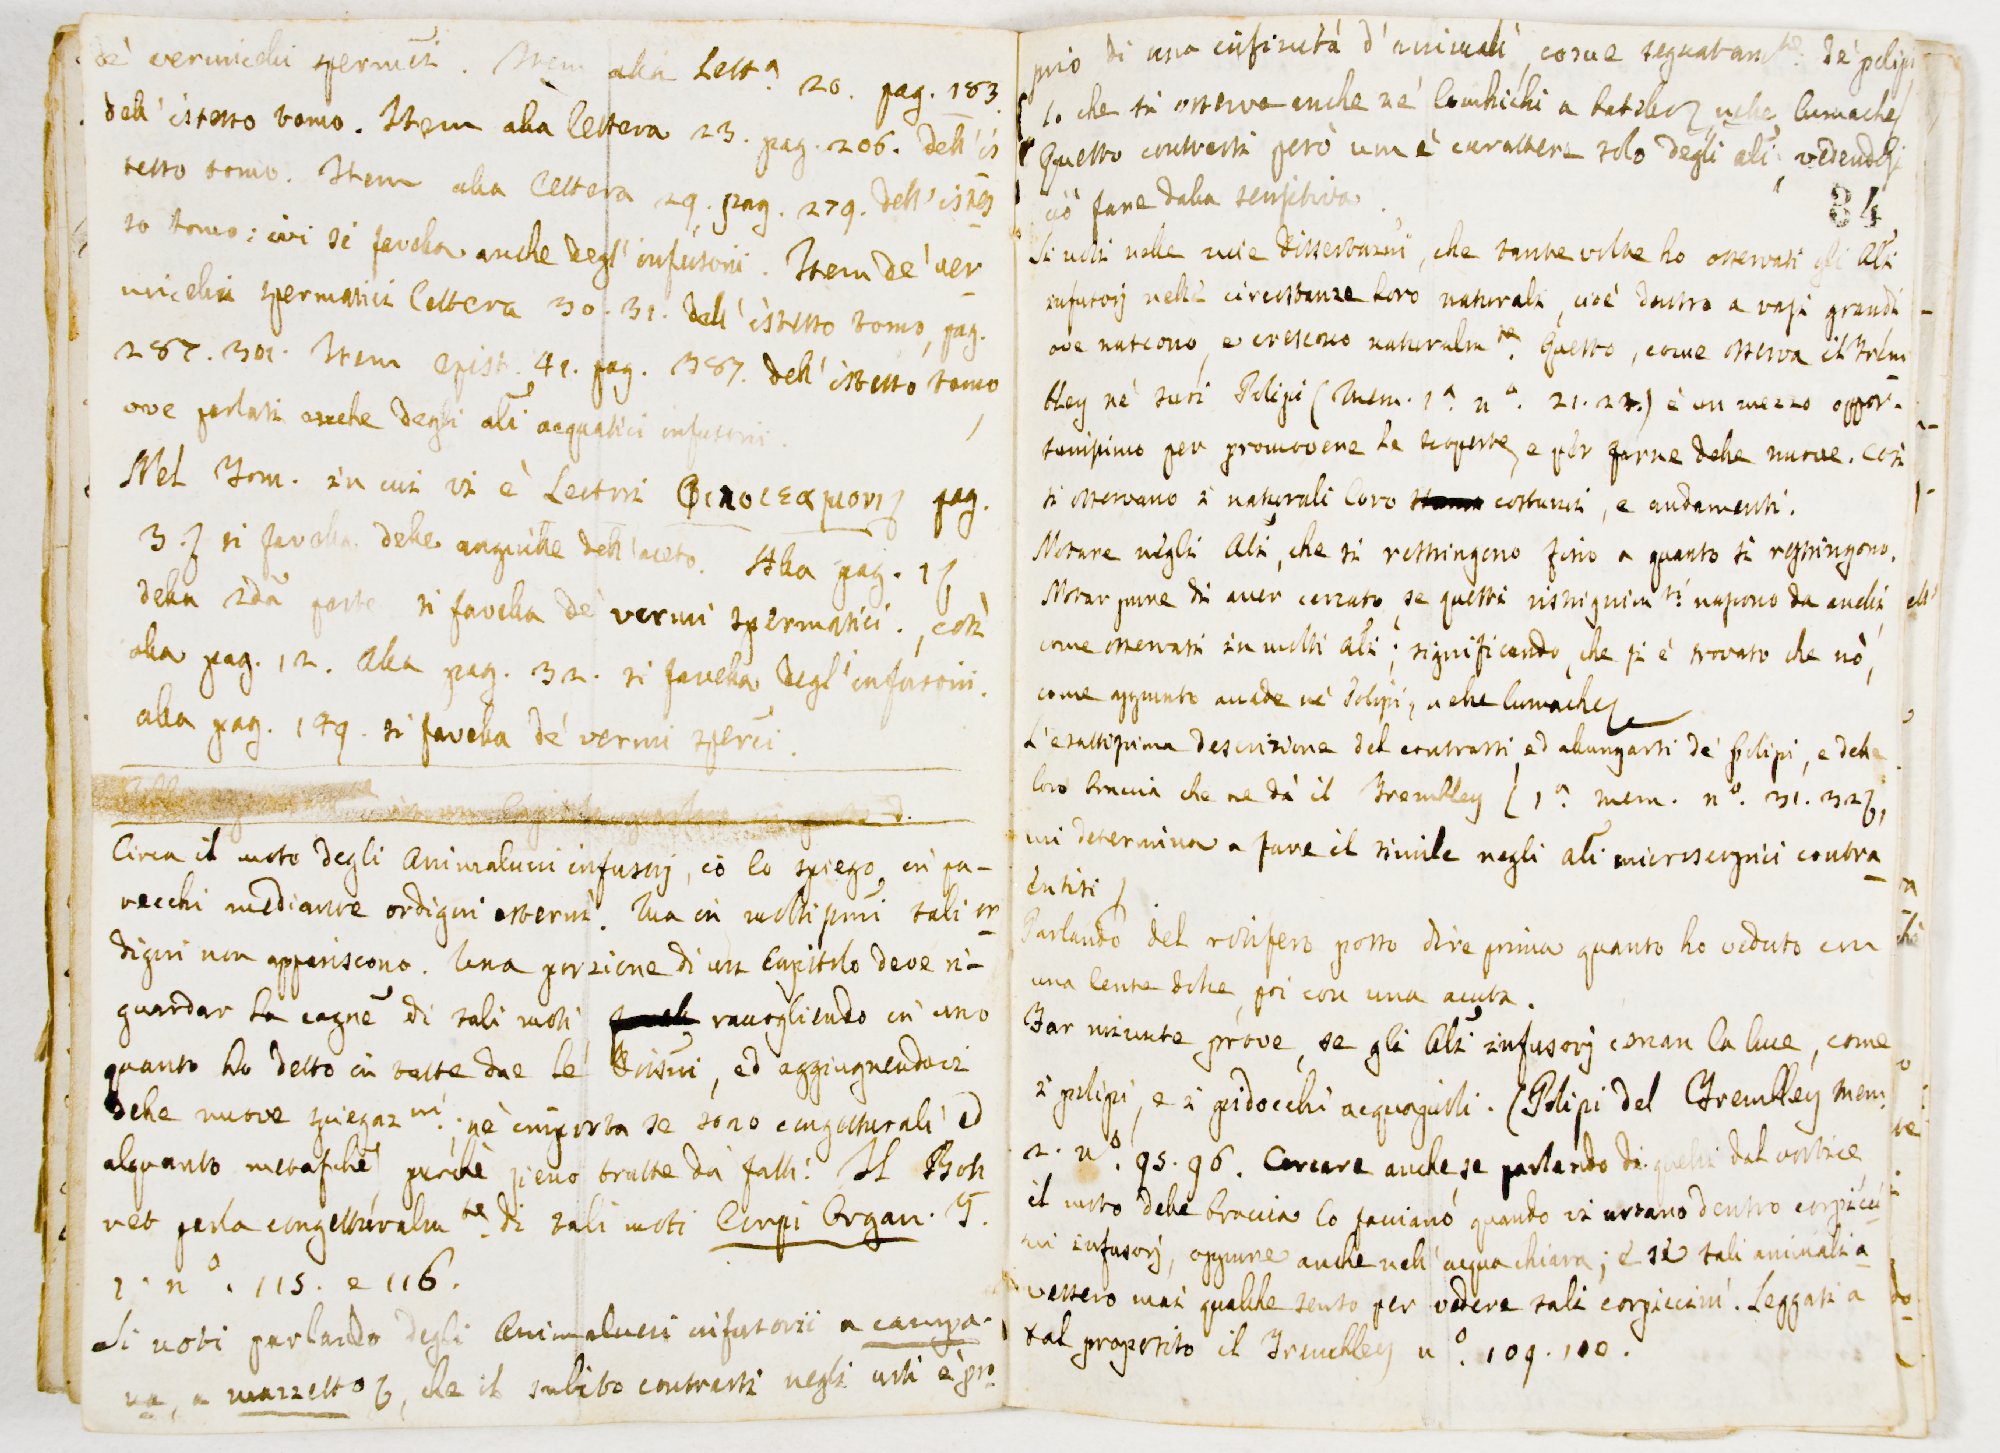 de' vermicelli spermci. Item alla Letta. 20. pag. 183.
dell'istesso tomo. Item alla lettera 23. pag. 206. dell'is
tesso tomo. Item alla lettera 29. pag. 279. dell'istes
so tomo; ivi si favella anche degl'infusorii. Item de' ver
micelli spermatici lettera 30. 31. dell'istesso tomo, pag.
287. 301. Item epist. 41. pag. 387. dell'istesso tomo,
ove parlasi anche degli ali acquatici infusorii.
Nel Tom. in cui vi è Lectori pag.
3. si favella delle anguille dell'aceto. Alla pag. 1
della 2da parte si favella de' vermi spermatici, così
alla pag. 12. Alla pag. 32. si favella degl'infusorii.
alla pag. 149. si favella de' vermi sperci.
Circa il moto degli Animalucci infusorj, io lo spiego in pa-
recchi mediante ordigni esterni. Ma in molti pmi tali or
digni non appariscono. Una porzione di un Capitolo deve ri-
guardar la cagne di tali moti raccogliendo in uno
quanto ho detto in tutte due le Divisni, ed aggiugnendoci
delle nuove spiegazni; nè importa se sono congetturali ed
alquanto metafche, purchè sieno tratte da' fatti. Il Bon
net parla congetturalmte di tali moti Corpi Organ. T.
1. no. 115. e 116.
Si noti parlando degli Animalucci infusorii a campa-
na, a mazzetto &, che il subito contrarsi negli urti è pro
prio di una infinità d'animali, come segnatamte de' polipi
lo che si osserva anche ne' lombrichi a nelle lumache
Questo contrarsi però non è carattere solo degli ali, vedendosi
ciò fare dalla sensitiva.
84
Si noti nelle mie dissertazni, che tante volte ho osservati gli Ali
infusorj nelle circostanze loro naturali, cioè dentro a vasi grandi
ove nascono, e crescono naturalmte. Questo, come osserva il Trem
bley ne' suoi Polipi (Mem. 1a. no. 21. 22.) è un mezzo oppor-
tunissimo per promovere le scoperte, e per farne delle nuove. Così
si osservano i naturali loro costumi, e andamenti.
Notare negli Ali, che si restringono fino a quanto si restringono.
Notar pure di aver cercato, se questi ristrignimti nascono da anelli,
come osservasi in molti Ali; significando, che si è trovato che nò,
come appunto accade ne' Polipi, nelle lumache
L'esattissima descrizione del contrarsi, ed allungarsi de' Polipi, e delle
loro braccia che ne dà il Trembley (1a. mem. no. 31. 32 &,
mi determina a fare il simile negli ali microscopici contra
entisi
Parlando del rotifero posso dire prima quanto ho veduto con
una lente dolce, poi con una acuta.
Far minute prove, se gli Ali infusorj cercan la luce, come
i polipi, e i pidocchi acquajuoli. (Polipi del Trembley mem.
2. no. 95. 96. Cercare anche se parlando di quelli dal vortice
il moto delle braccia lo facciano quando vi urtano dentro corpicci
ni infusorj, oppure anche nell'acqua chiara; e se tali animali a
vessero mai qualche senso per vedere tali corpiccini. Leggasi a
tal proposito il Trembley no. 109. 110.